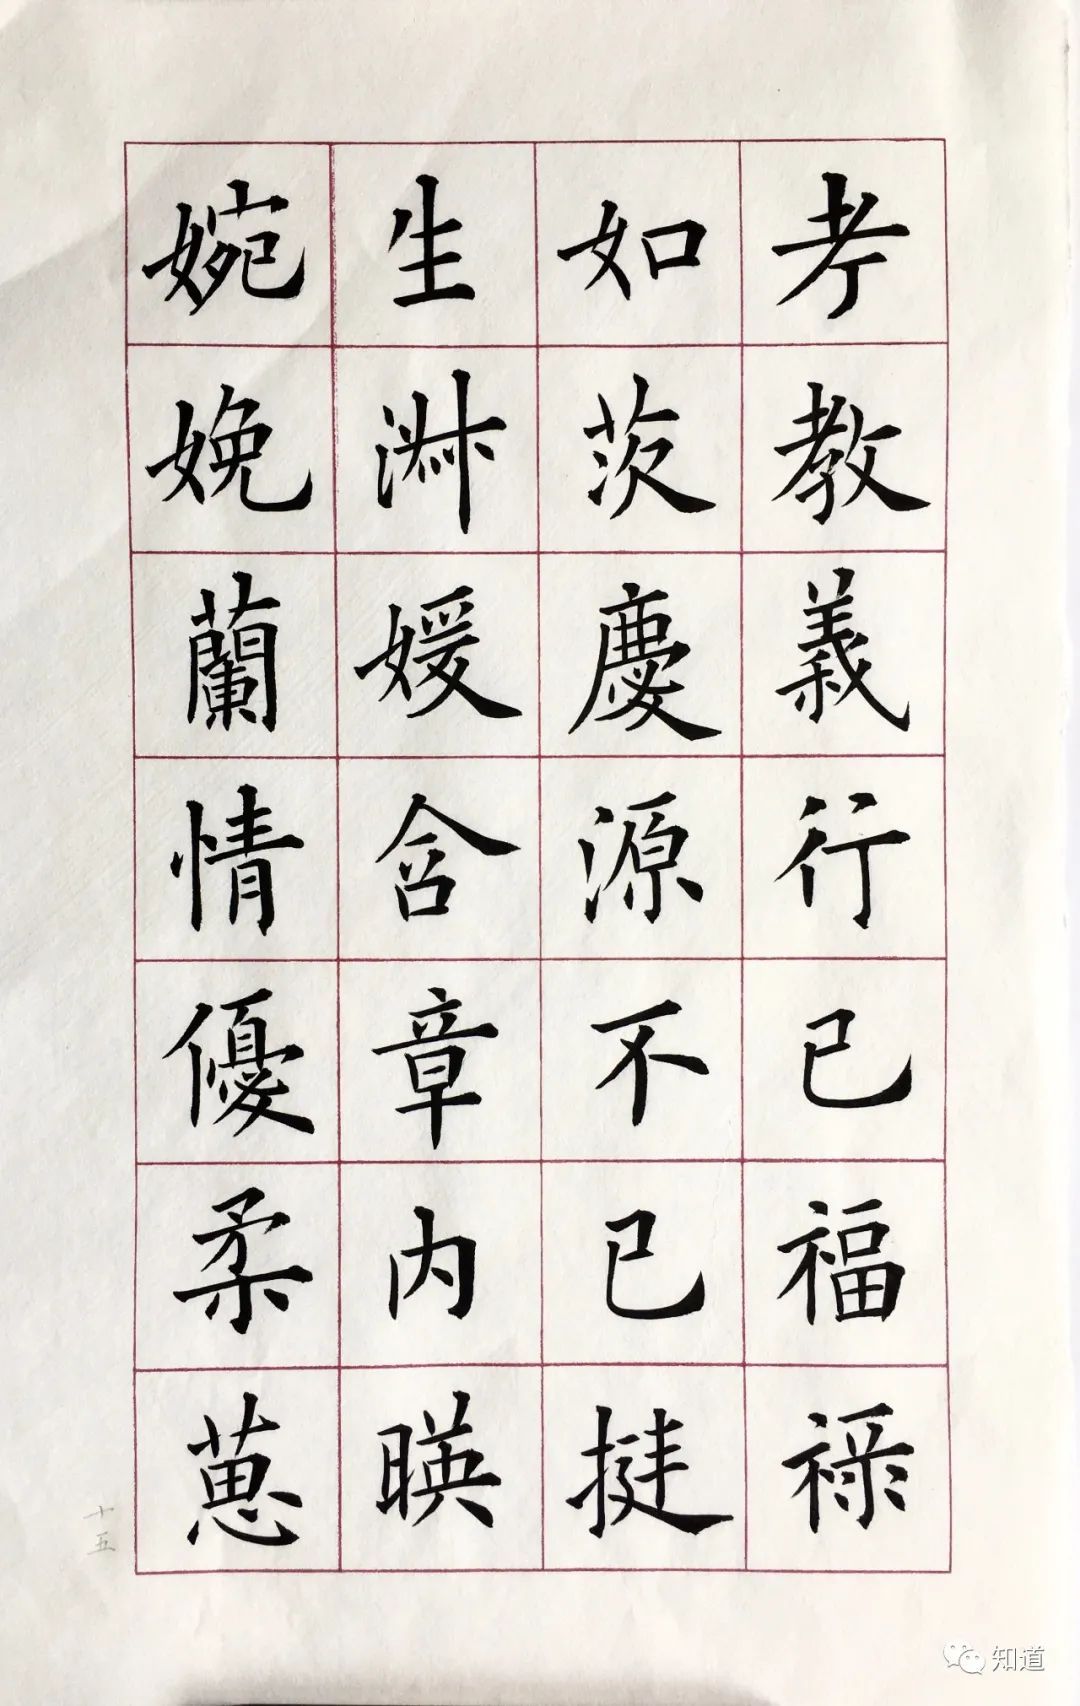 考教義行已福禄
如茨慶源不已挺
生淑媛含章内暎
婉娩蘭情優柔蕙
十五
知道